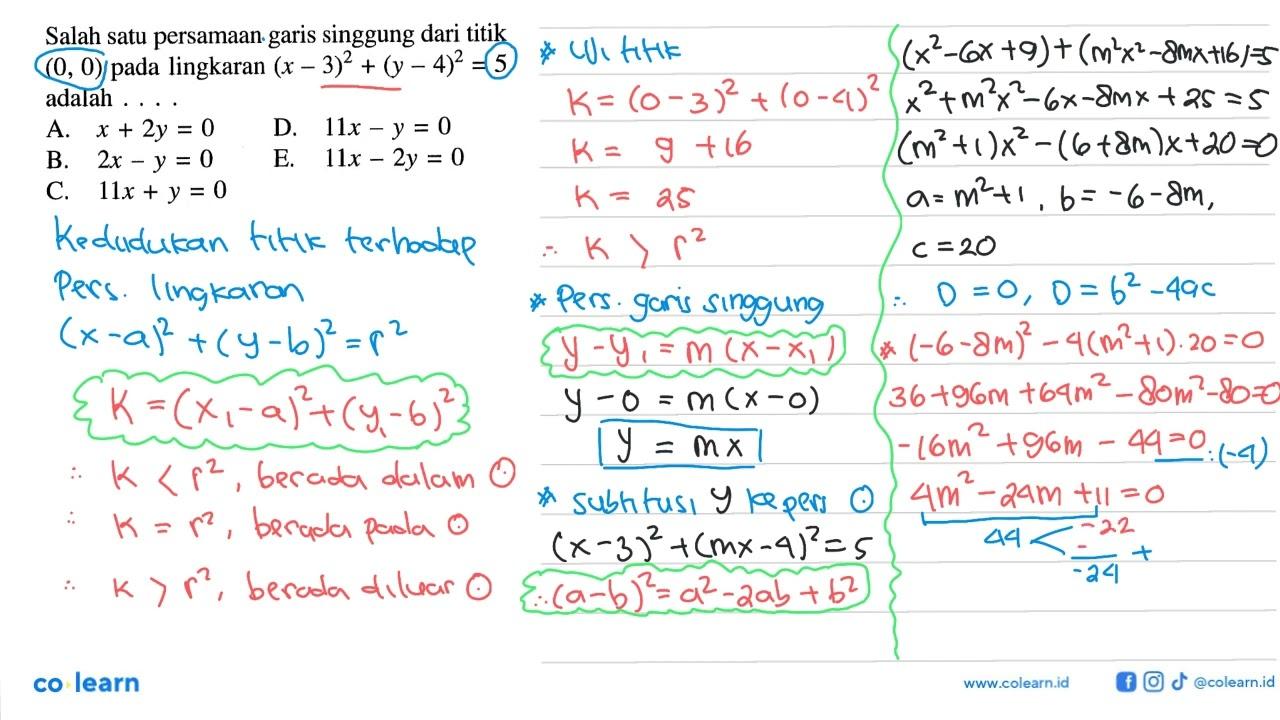 Salah satu persamaan garis singgung dari titik
(0, 0) pada lingkaran (x – 3)² + (y – 4)² = 5
adalah . . . .
A. x + 2y = 0 D. 11x – y = 0
B. 2x – y = 0 E. 11x – 2y = 0
C. 11x + y = 0
Kedudukan titik terhadap
Pers. lingkaran
(x-a)² + (y-b)² = r²
K = (x₁-a)² + (y₁-b)²
∴ K < r², berada dalam ⊙
∴ K = r², berada pada ⊙
∴ K > r², berada diluar ⊙
* Uji titik
K = (0-3)² + (0-4)²
K = 9 + 16
K = 25
∴ K > r²
* Pers. garis singgung
y - y₁ = m(x - x₁)
y - 0 = m(x - 0)
y = mx
* subtitusi y ke pers ⊙
(x-3)² + (mx-4)² = 5
∴ (a-b)² = a² - 2ab + b²
(x² - 6x + 9) + (m²x² - 8mx + 16) = 5
x² + m²x² - 6x - 8mx + 25 = 5
(m² + 1)x² - (6 + 8m)x + 20 = 0
a = m² + 1, b = -6 - 8m,
c = 20
∴ D = 0, D = b² - 4ac
* (-6 - 8m)² - 4(m² + 1) . 20 = 0
36 + 96m + 64m² - 80m² - 80 = 0
-16m² + 96m - 44 = 0 : (-4)
4m² - 24m + 11 = 0
44 < -22
-
-24 +
co learn
www.colearn.id @colearn.id